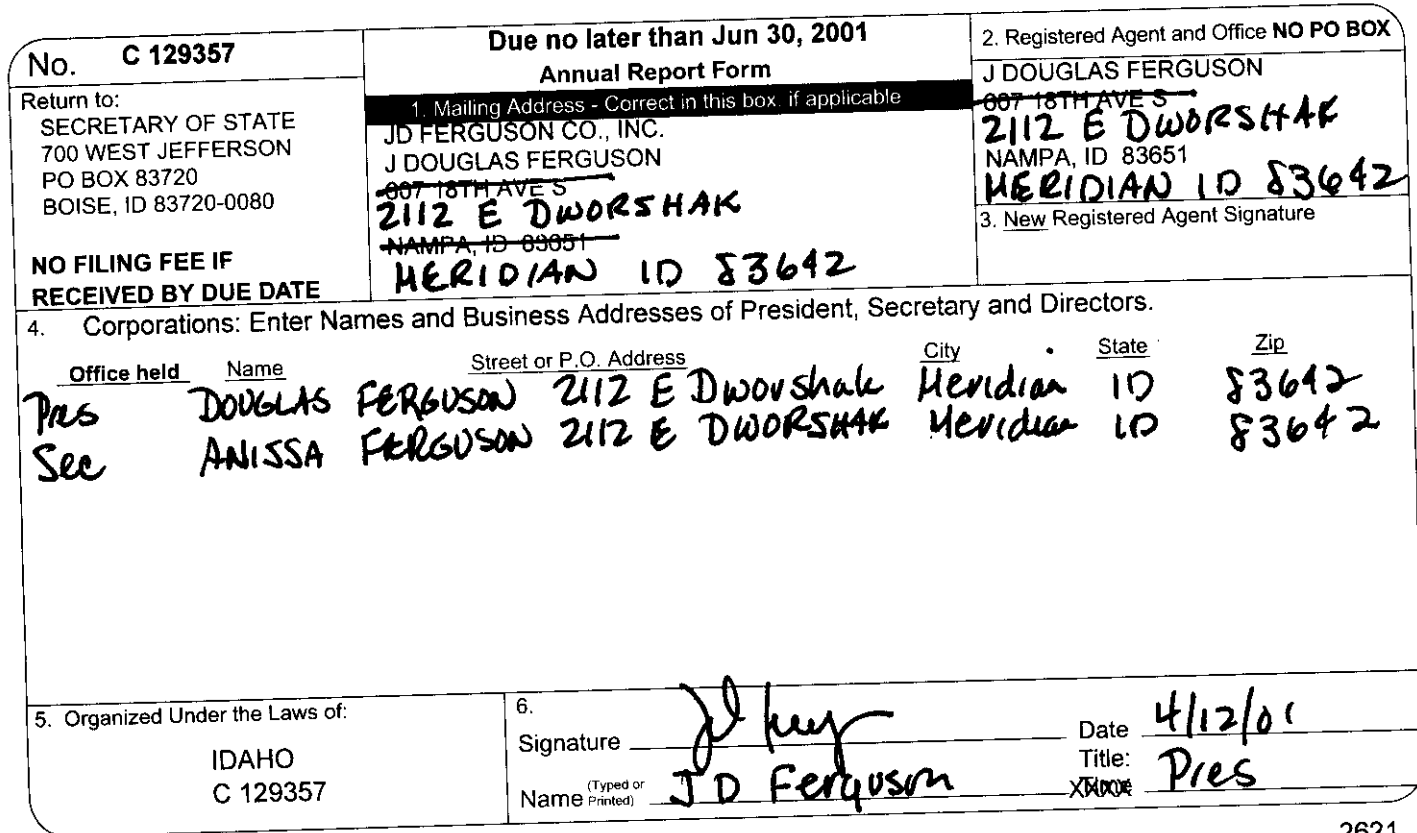 No. C 129357
Return to:
SECRETARY OF STATE
700 WEST JEFFERSON
PO BOX 83720
BOISE, ID 83720-0080
NO FILING FEE IF
RECEIVED BY DUE DATE
Due no later than Jun 30, 2001
Annual Report Form
1. Mailing Address - Correct in this box if applicable
JD FERGUSON CO., INC.
J DOUGLAS FERGUSON
607 18TH AVE S
2112 E DWORSHAK
NAMPA, ID 83651
MERIDIAN ID 83642
2. Registered Agent and Office NO PO BOX
J DOUGLAS FERGUSON
607 18TH AVE S
2112 E DWORSHAK
NAMPA, ID 83651
MERIDIAN ID 83642
3. New Registered Agent Signature
4. Corporations: Enter Names and Business Addresses of President, Secretary and Directors.
Office held Name Street or P.O. Address City State Zip
Pres DOUGLAS FERGUSON 2112 E Dworshak Meridian ID 83642
Sec ANISSA FERGUSON 2112 E DWORSHAK Meridian ID 83642
5. Organized Under the Laws of:
IDAHO
C 129357
6.
Signature Date 4/12/01
Name (Typed or Printed) J D Ferguson Title: Pres
2621